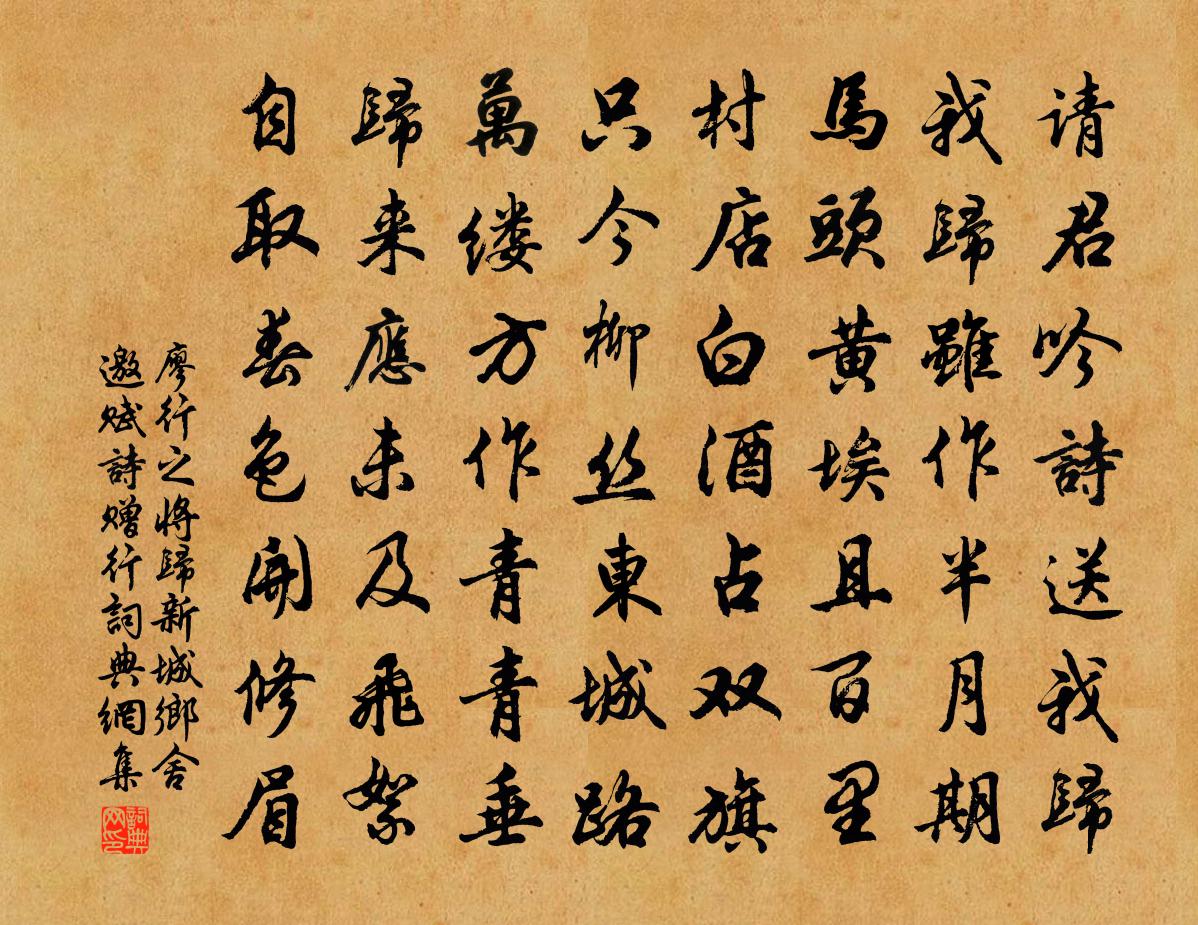 请君吟詩送我歸
我歸雖作半月期
馬頭黃埃且百里
村店白酒占双旗
只今柳丝東城路
萬缕方作青青垂
歸来應未及飛絮
自取春色開修眉
廖行之将歸新城鄉舍
邀赋詩赠行詞典網集
詞典
网印